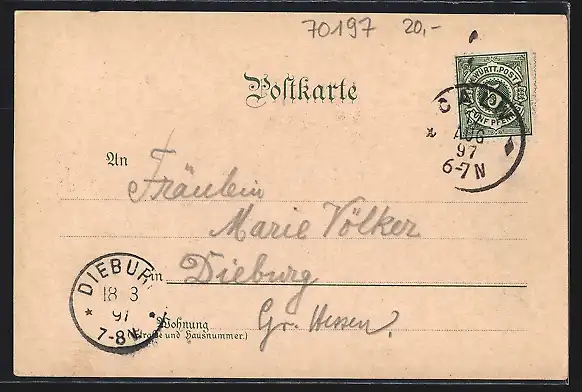 70197 20,-
K. WÜRTT. POST
5
FÜNF PFENNIG
CALW
AUG
97
6-7N
Postkarte
An
Fräulein
Marie Völker
in Dieburg
Gr. Hessen.
Wohnung
(Straße und Hausnummer.)
DIEBURG
18 3
97
7-8N